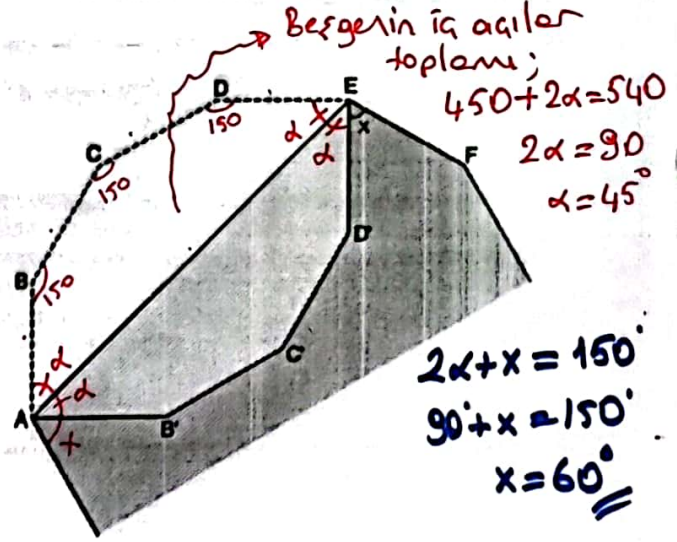 Beşgenin iç açılar
toplamı;
450+2α=540
2α=90
α=45°
D
E
150
α
x
α
C
150
F
B
150
D'
α
α
C'
A
B'
x
2α+x=150°
90°+x=150°
x=60°